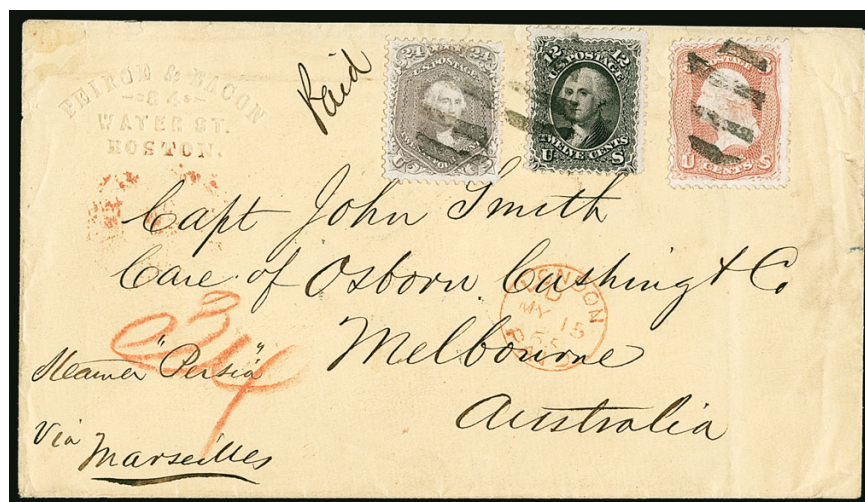 PEIRCE & BACON
84
WATER ST.
BOSTON.
Paid
24 24
U.S. POSTAGE
12 12
U.S. POSTAGE
TWELVE CENTS
U S
U S
CENTS
Capt John Smith
Care of Osborn Cushing & Co
Melbourne
Australia
LONDON
MY 15
PAID
34
Steamer "Persia"
Via Marseilles